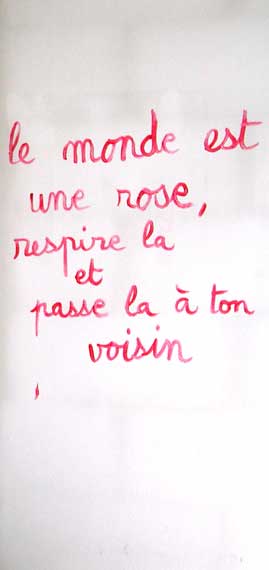 le monde est
une rose,
respire la
et
passe la à ton
voisin